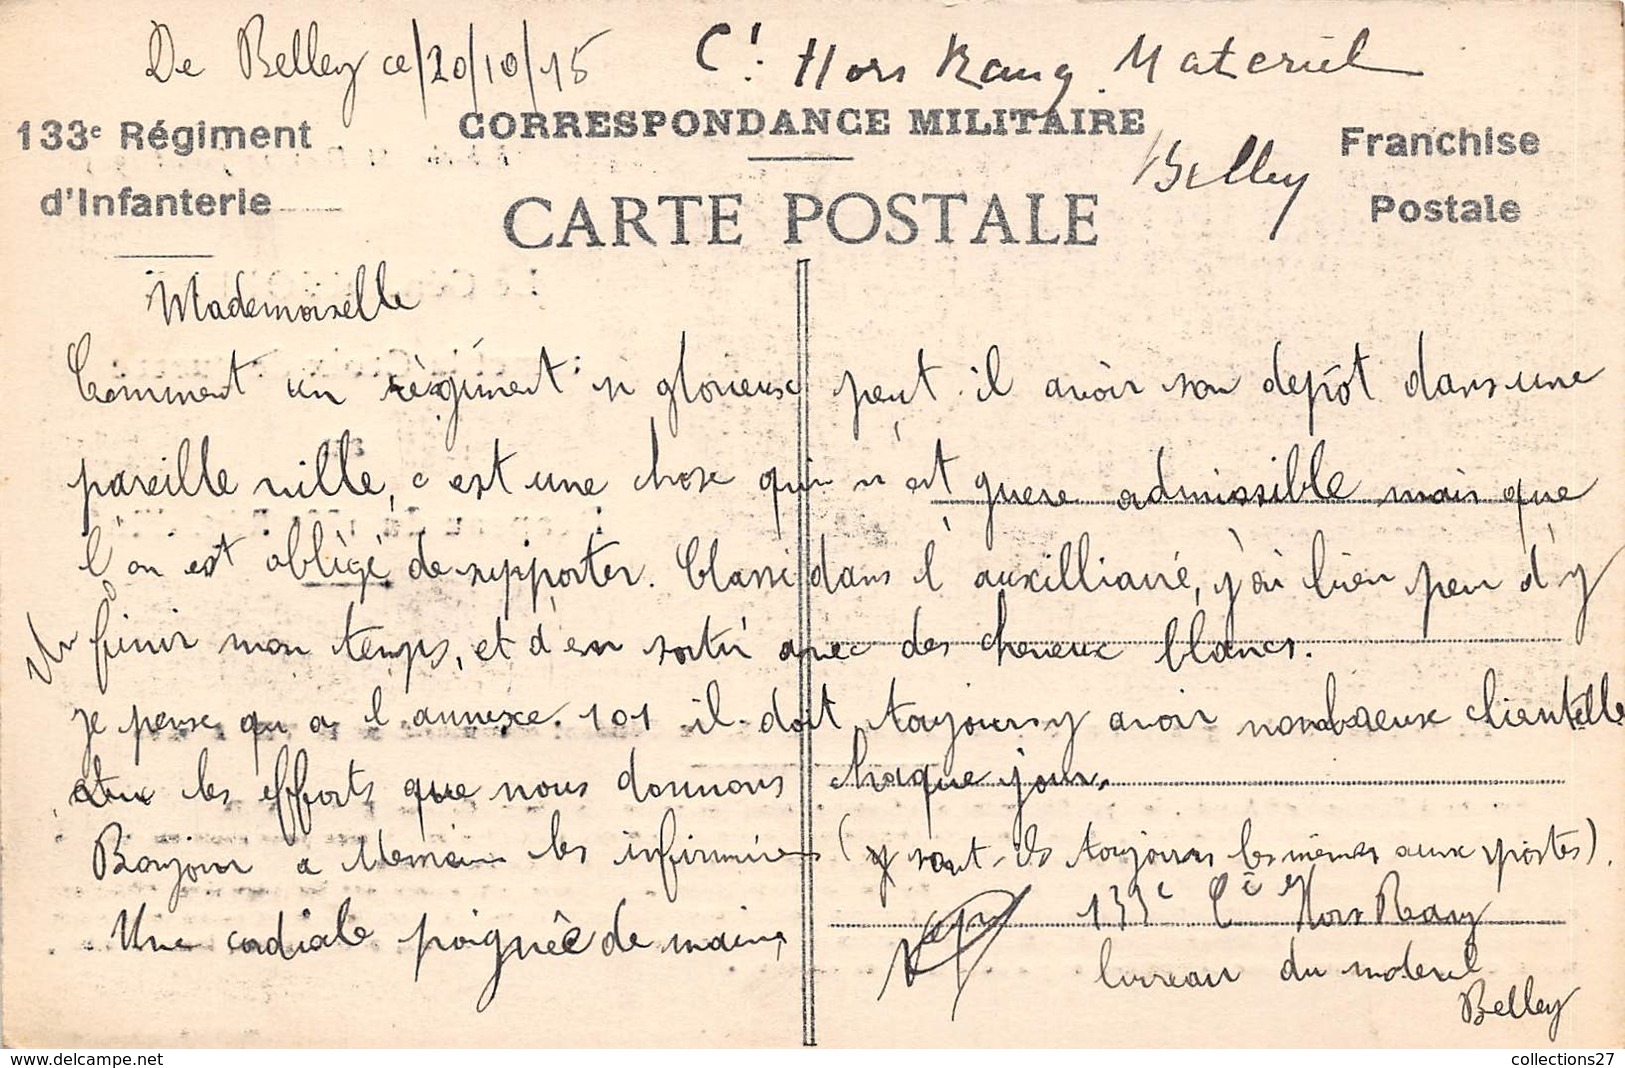 De Belley ce/20/10/15 Cⁱ. Hors Rang Materiel
CORRESPONDANCE MILITAIRE
133ᵉ Régiment
Franchise
Belley
d'Infanterie
Postale
CARTE POSTALE
Mademoiselle
Comment un règiment si glorieux peut il avoir son depôt dans une
pareille ville, c est une chose qui n'est guere admissible mais que
l'on est obligé de supporter. Classé dans l'auxilliaire, j'ai bien peur d'y
finir mon temps, et d'en sortir avec des cheveux blancs.
je pense qu a l annexe. 101 il doit toujours y avoir nombreuse clientelle
les efforts que nous donnons chaque jour.
Bonjour a les infirmières (y sont-ils toujours les mêmes aux postes).
Une cordiale poignée de mains
133ᵉ Cⁱᵉ Hors Rang
bureau du materiel
Belley
collections27